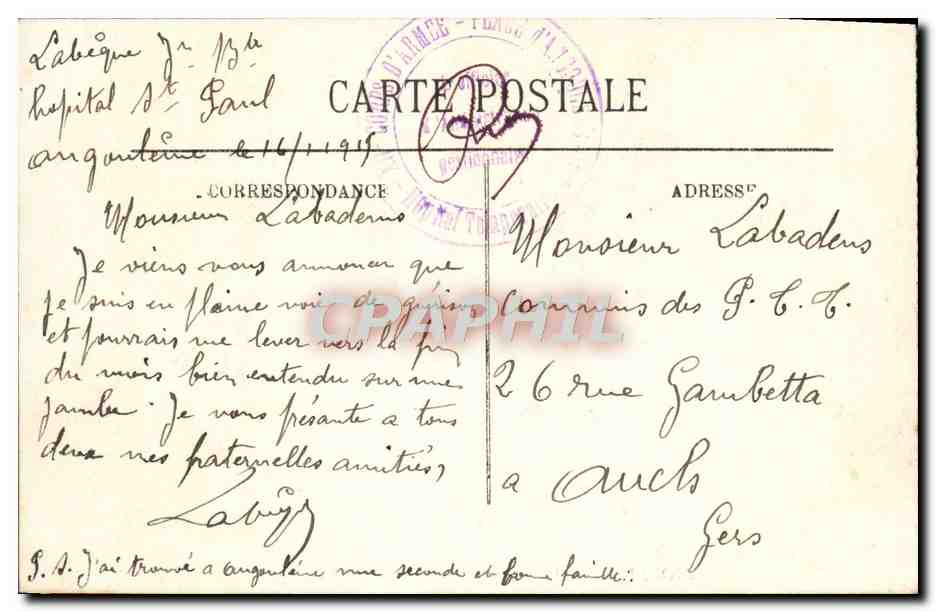 Labêgue Jn Bte
hopital St Paul
angoulême le 16/1 1915
CARTE POSTALE
CORRESPONDANCE
Monsieur Labadens
Je viens vous annoncer que
je suis en plaine voie de guérison
et pourrais me lever vers la fin
du mois bien entendu sur une
jambe. Je vous présante a tous
deux mes fraternelles amitiés,
Labégue
P.S. J'ai trouvé a angoulême une seconde et bonne famille.
ADRESSE
Monsieur Labadens
commis des P.T.T.
26 rue Gambetta
a Auch
Gers
D'ARMÉE - PLACE D'
Hôpital Temporaire
CPAPHIL